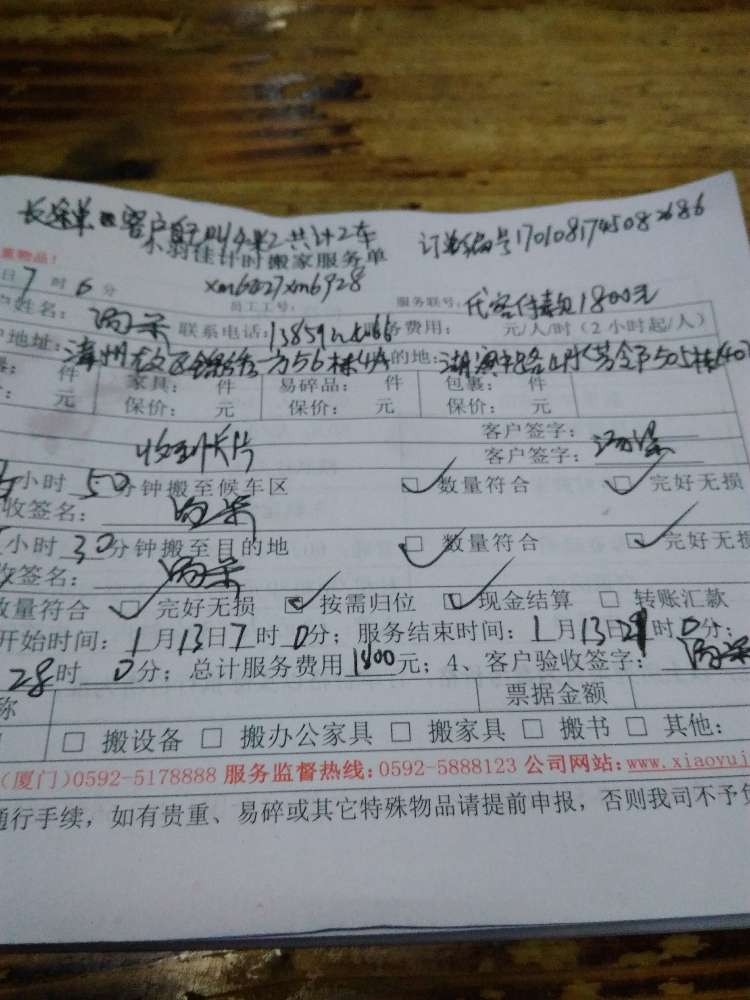 长途单 客户自己叫车2共计2车 订单编号1701081745082686
重物品！ 小羽佳计时搬家服务单
日7时6分 xm6827xm6928 员工工号： 服务联号： 代客付款1800元
户姓名： 联系电话：13859 务费用： 元/人/时（2小时起/人）
户地址：漳州 方56栋 的地：湖滨中路 505栋
件 家具： 件 易碎品： 件 包裹： 件
元 保价： 元 保价： 元 保价： 元
收到卡片 客户签字：
客户签字：
小时50分钟搬至候车区 数量符合 完好无损
收签名：
小时30分钟搬至目的地 数量符合 完好无损
收签名：
数量符合 完好无损 按需归位 现金结算 转账汇款
开始时间：1月13日7时0分；服务结束时间：1月13日 时0分；
28时0分；总计服务费用1800元；4、客户验收签字：
称 票据金额
搬设备 搬办公家具 搬家具 搬书 其他：
（厦门）0592-5178888 服务监督热线：0592-5888123 公司网站：www.xiaoyuj
通行手续，如有贵重、易碎或其它特殊物品请提前申报，否则我司不予